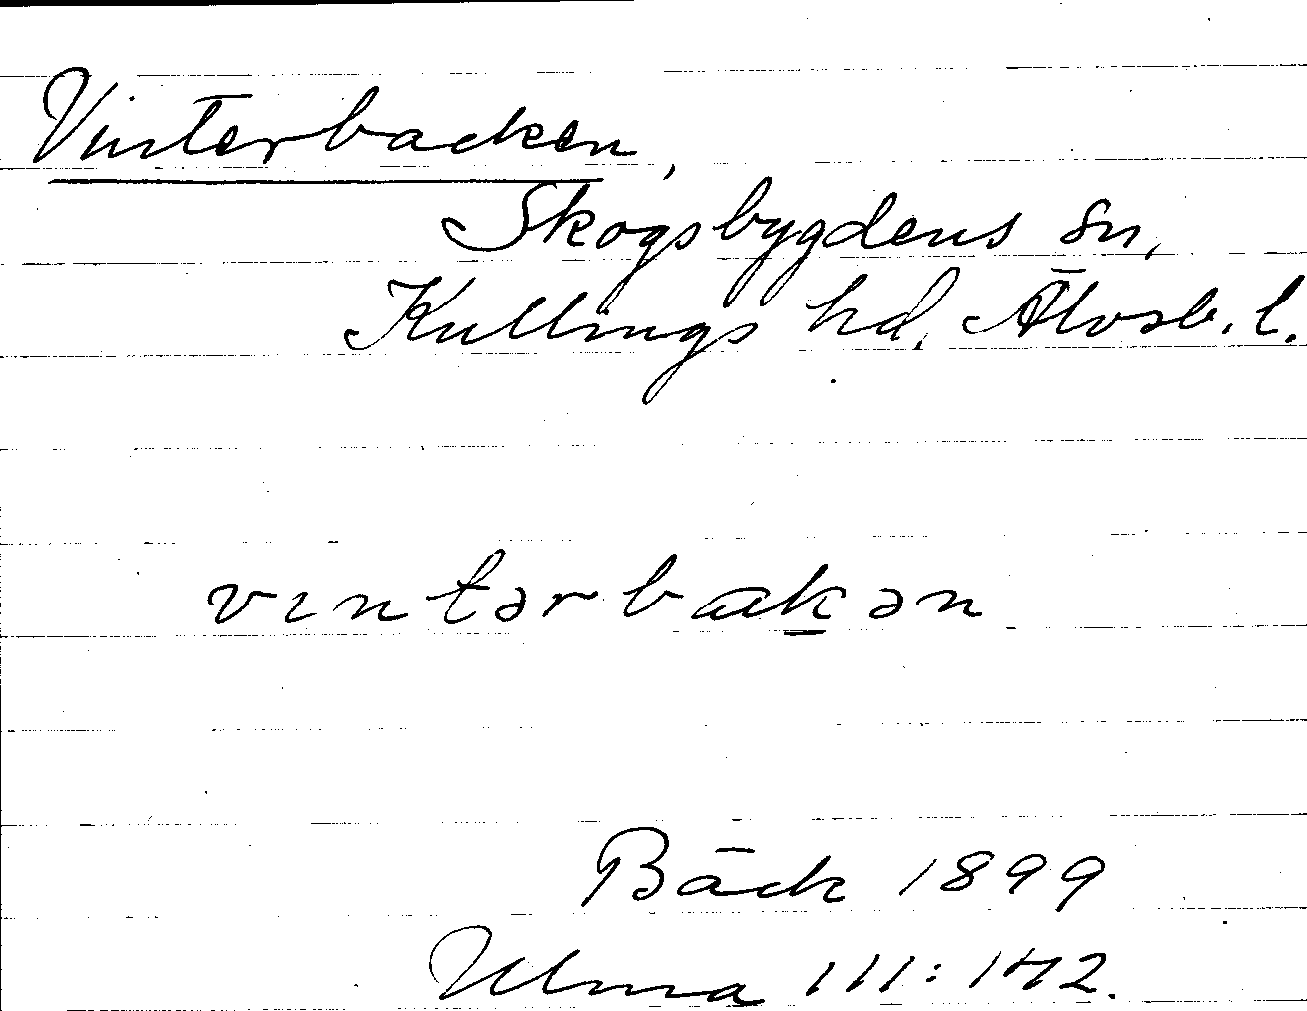 Vinterbacken,
Skogsbygdens sn,
Kullings hd, Älvsb. l.
vıntərbakən
Bäck 1899
Ulma 111:142.